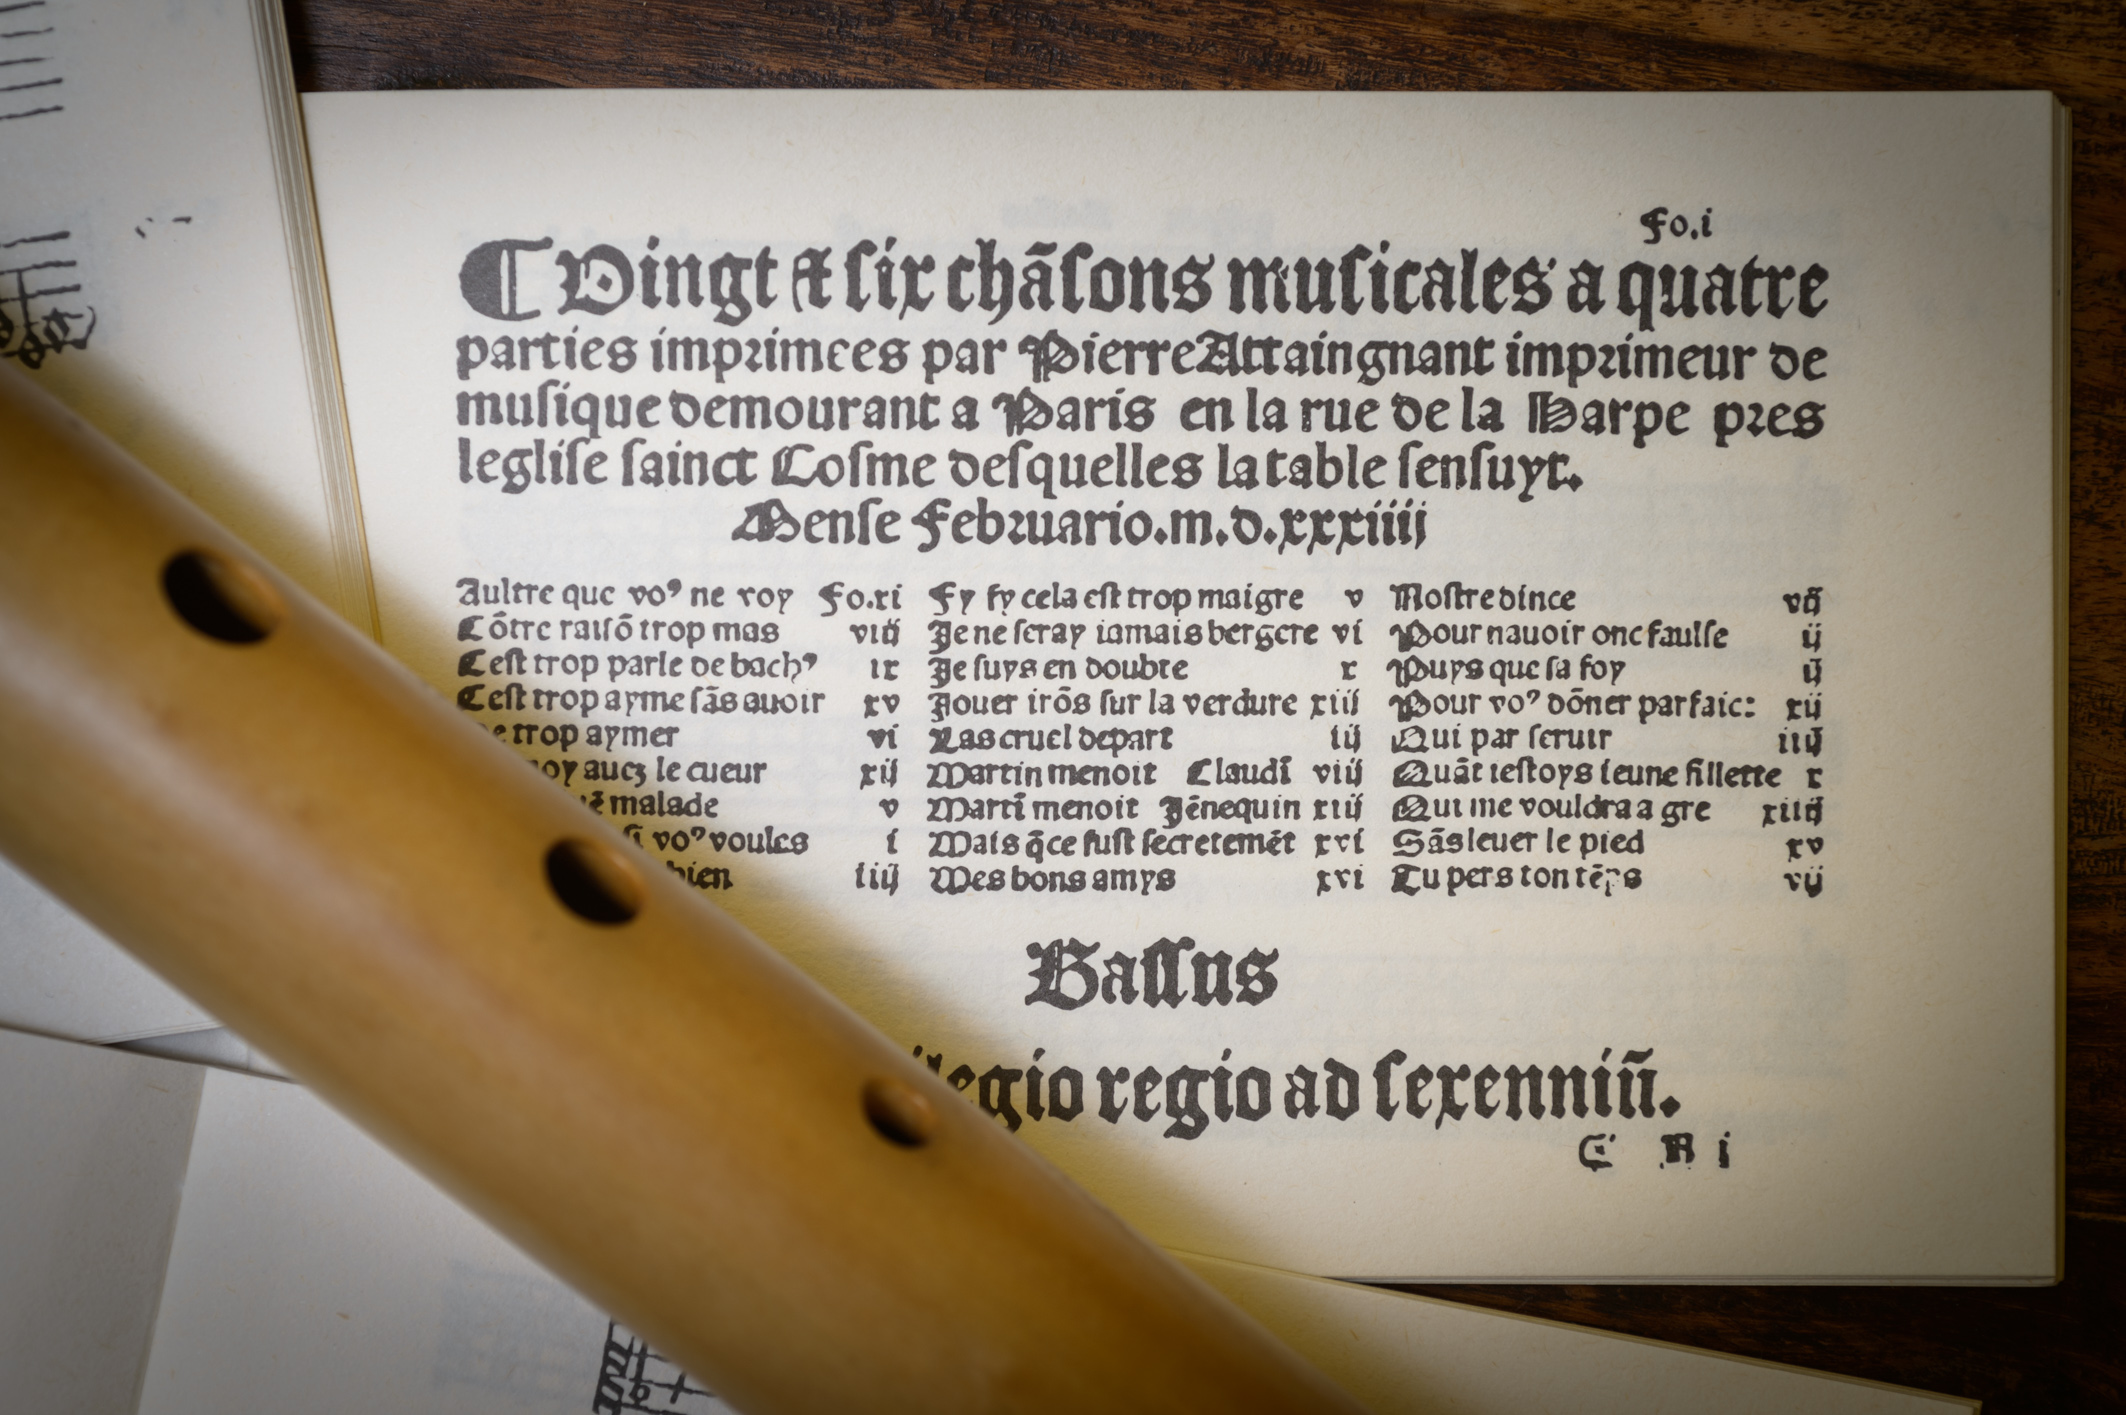 Fo.i
¶ Vingt & six chãsons musicales a quatre
parties imprimees par Pierre Attaingnant imprimeur de
musique demourant a Paris en la rue de la Harpe pres
leglise sainct Cosme desquelles la table sensuyt.
Mense Februario.m.d.xxxiiij
Aultre que voꝰ ne voy Fo.xi
Cõtre raisõ trop mas viij
Cest trop parle de bachꝰ ix
Cest trop ayme sãs auoir xv
trop aymer vi
auez le cueur xij
malade v
si voꝰ voules i
bien iiij
Fy fy cela est trop maigre v
Je ne seray iamais bergere vi
Je suys en doubte x
Jouer irõs sur la verdure xiij
Las cruel depart iij
Martin menoit Claudĩ viij
Martĩ menoit Jẽnequin xiij
Mais q̃ce fust secretemẽt xvi
Mes bons amys xvi
Nostre dince vij
Pour nauoir onc faulse ij
Puys que sa foy ij
Pour voꝰ dõner parfaic: xij
Qui par seruir iiij
Quãt iestoys ieune fillette x
Qui me vouldra a gre xiiij
Sãs leuer le pied xv
Tu pers ton tẽps vij
Bassus
regio ad sexenniũ.
i